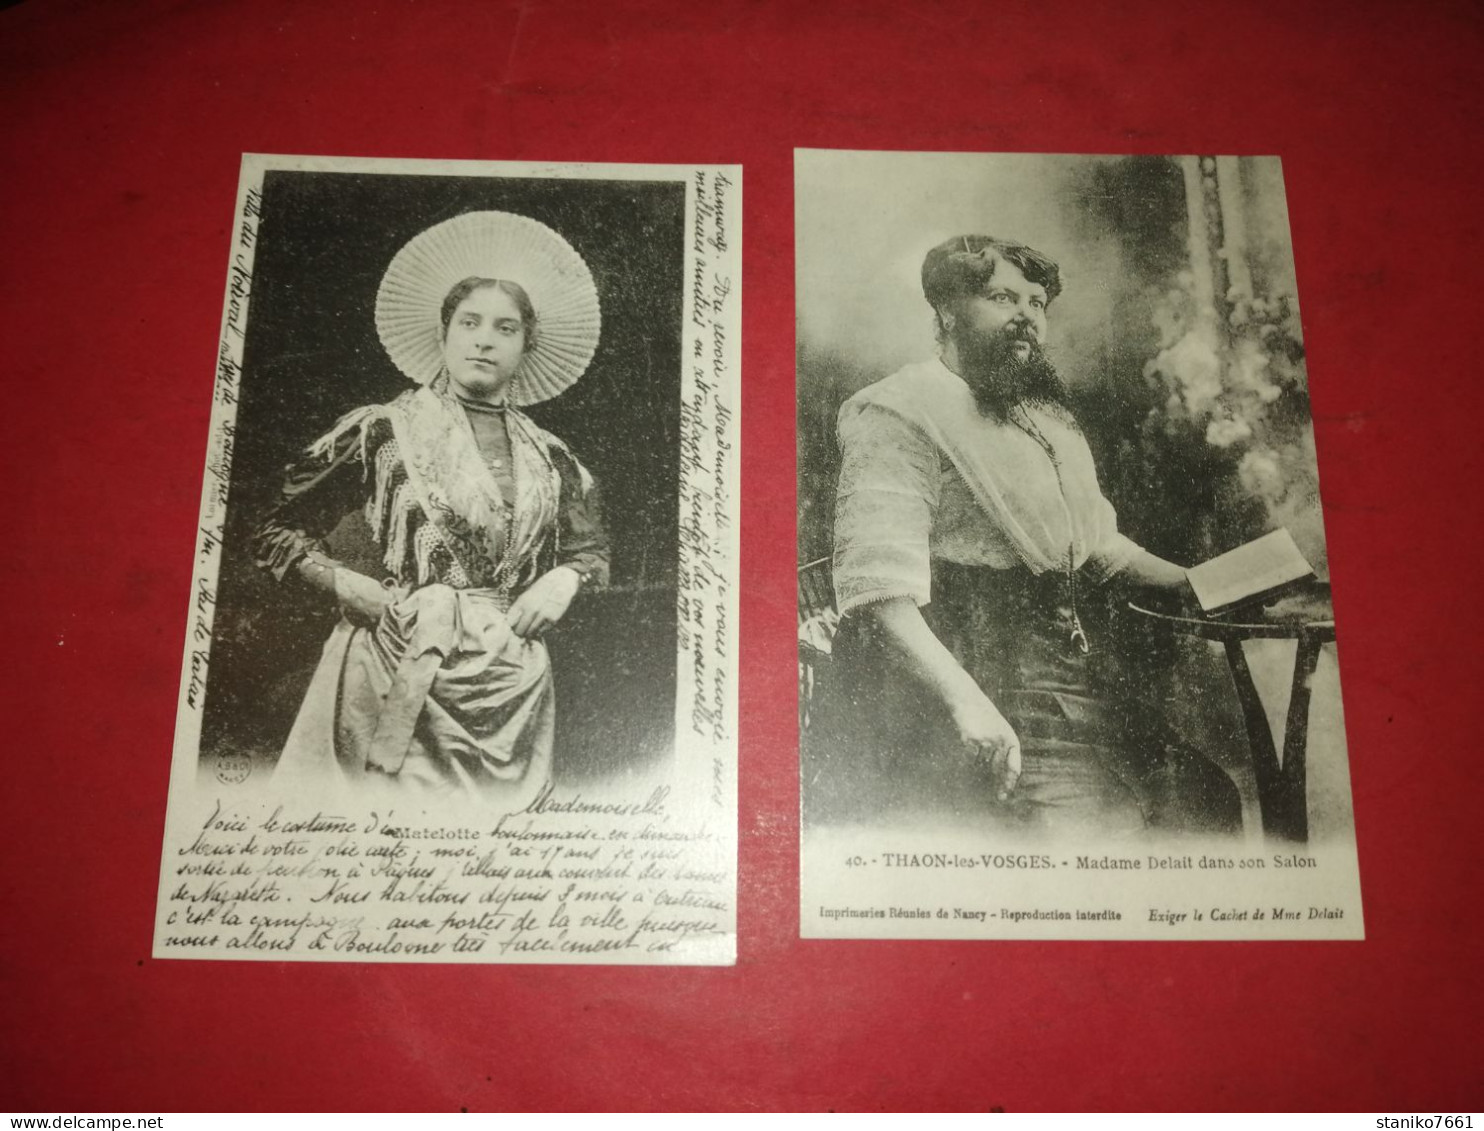 Mademoiselle,
Voici le costume d'une Matelotte boulonnaise en dimanche
Merci de votre jolie carte ; moi, j'ai 17 ans je suis
sortie de pension à Pâques j'étais au couvent des Dames
de Nazareth. Nous habitons depuis 3 mois à Outreau
c'est la campagne aux portes de la ville puisque
nous allons à Boulogne très facilement en
tramway. Au revoir, Mademoiselle ; je vous envoie mes
meilleures amitiés en attendant bientôt de vos nouvelles
Madeleine
Villa du
de Boulogne s/m. Pas de Calais
40. - THAON-les-VOSGES. - Madame Delait dans son Salon
Imprimeries Réunies de Nancy - Reproduction interdite Exiger le Cachet de Mme Delait
delcampe.net
staniko7661